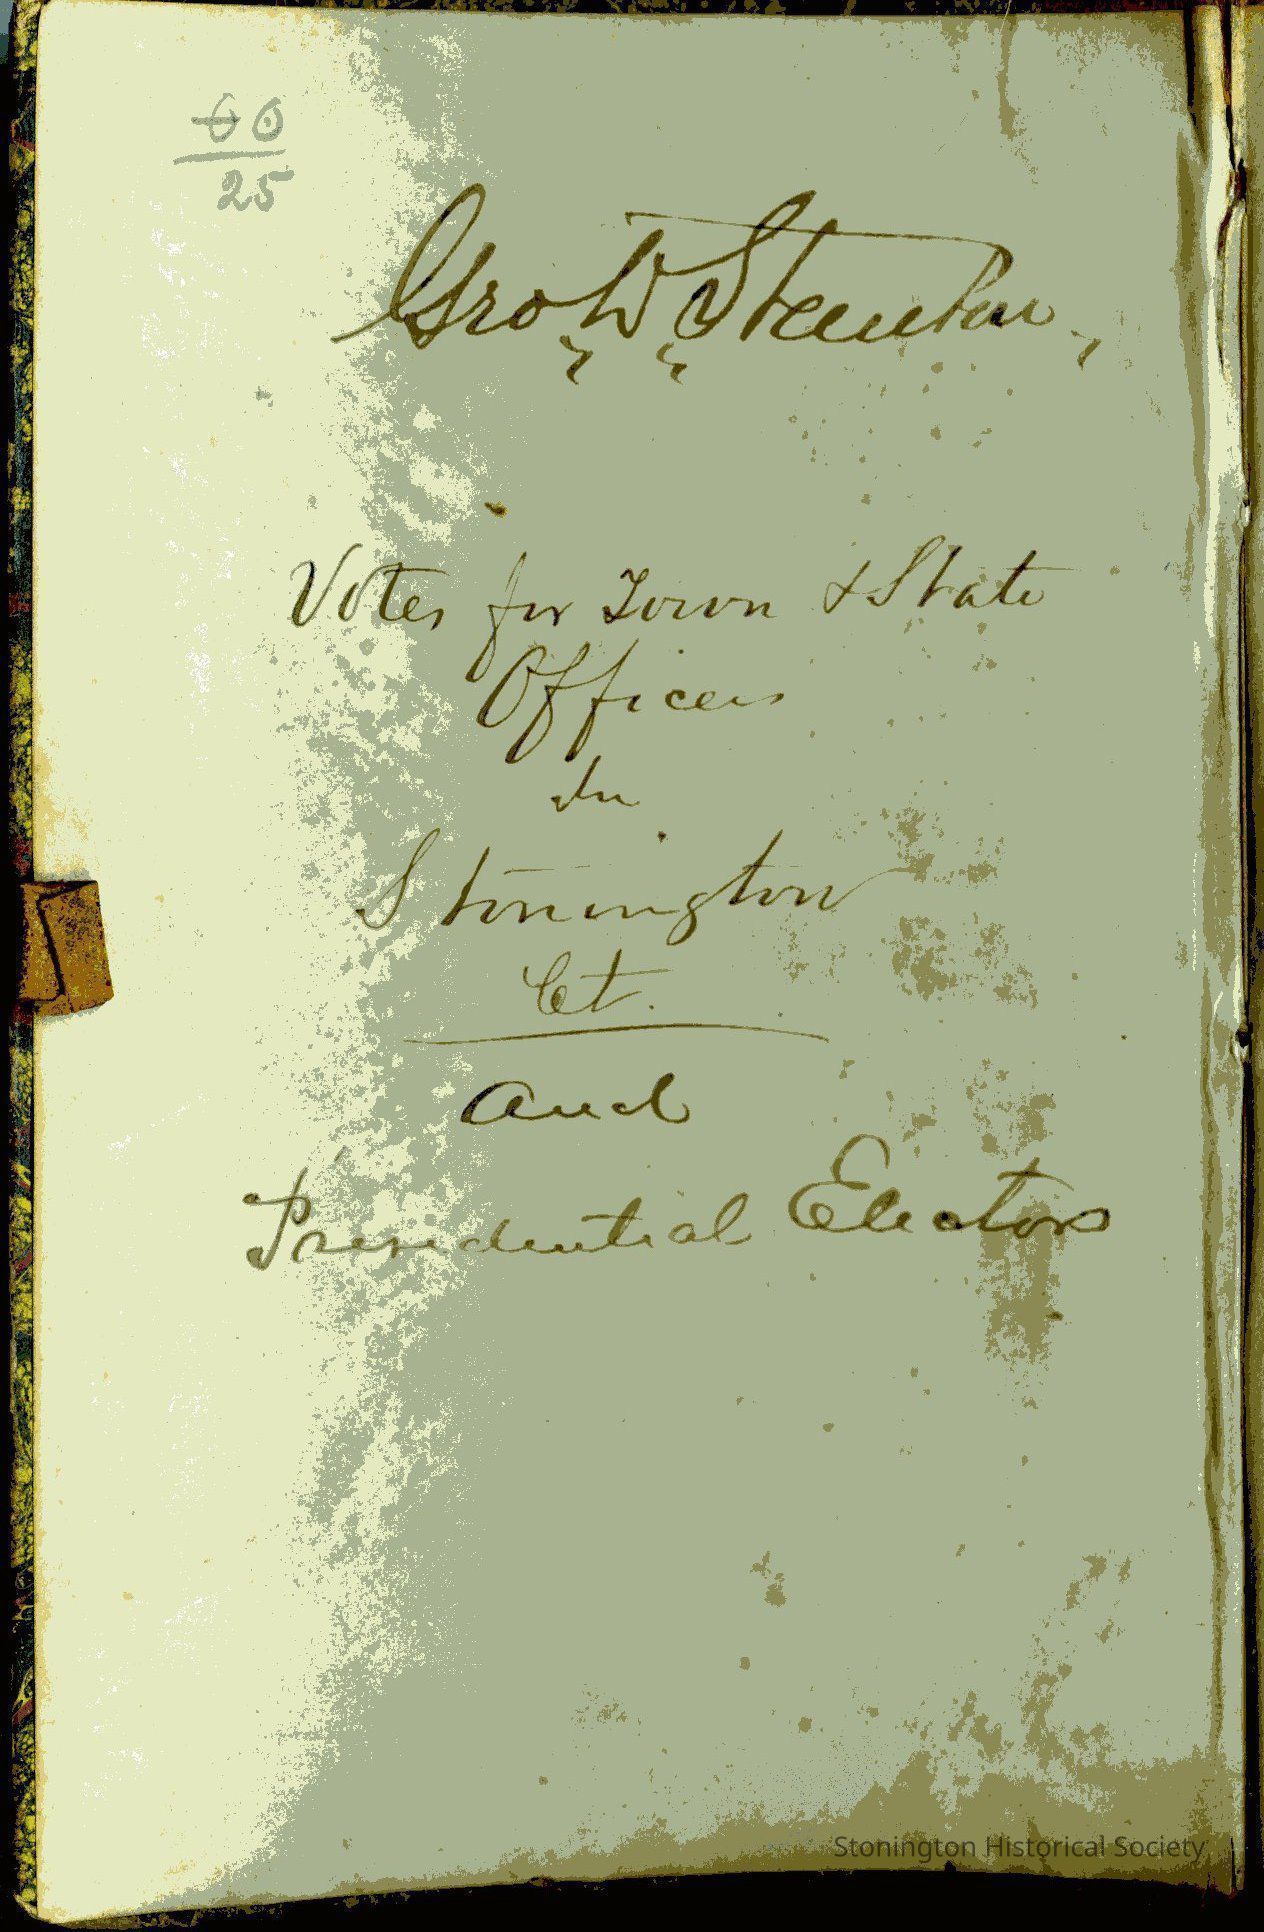 60
25
Geo W Stanton
Votes for Town & State
Officers
In
Stonington
Ct.
And
Presidential Electors
Stonington Historical Society